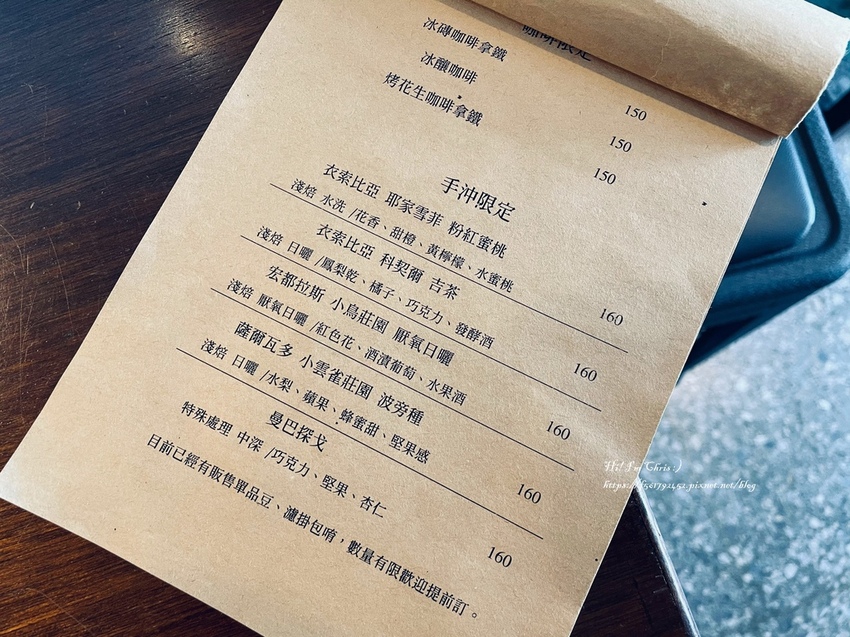 咖啡限定
冰磚咖啡拿鐵 150
冰釀咖啡 150
烤花生咖啡拿鐵 150
手沖限定
衣索比亞 耶家雪菲 粉紅蜜桃
淺焙 水洗 /花香、甜橙、黃檸檬、水蜜桃 160
衣索比亞 科契爾 吉茶
淺焙 日曬 /鳳梨乾、橘子、巧克力、發酵酒 160
宏都拉斯 小鳥莊園 厭氧日曬
淺焙 厭氧日曬 /紅色花、酒漬葡萄、水果酒 160
薩爾瓦多 小雲雀莊園 波旁種
淺焙 日曬 /水梨、蘋果、蜂蜜甜、堅果感 160
曼巴探戈
特殊處理 中深 /巧克力、堅果、杏仁 160
目前已經有販售單品豆、濾掛包唷，數量有限歡迎提前訂。
Hi! I'm Chris :)